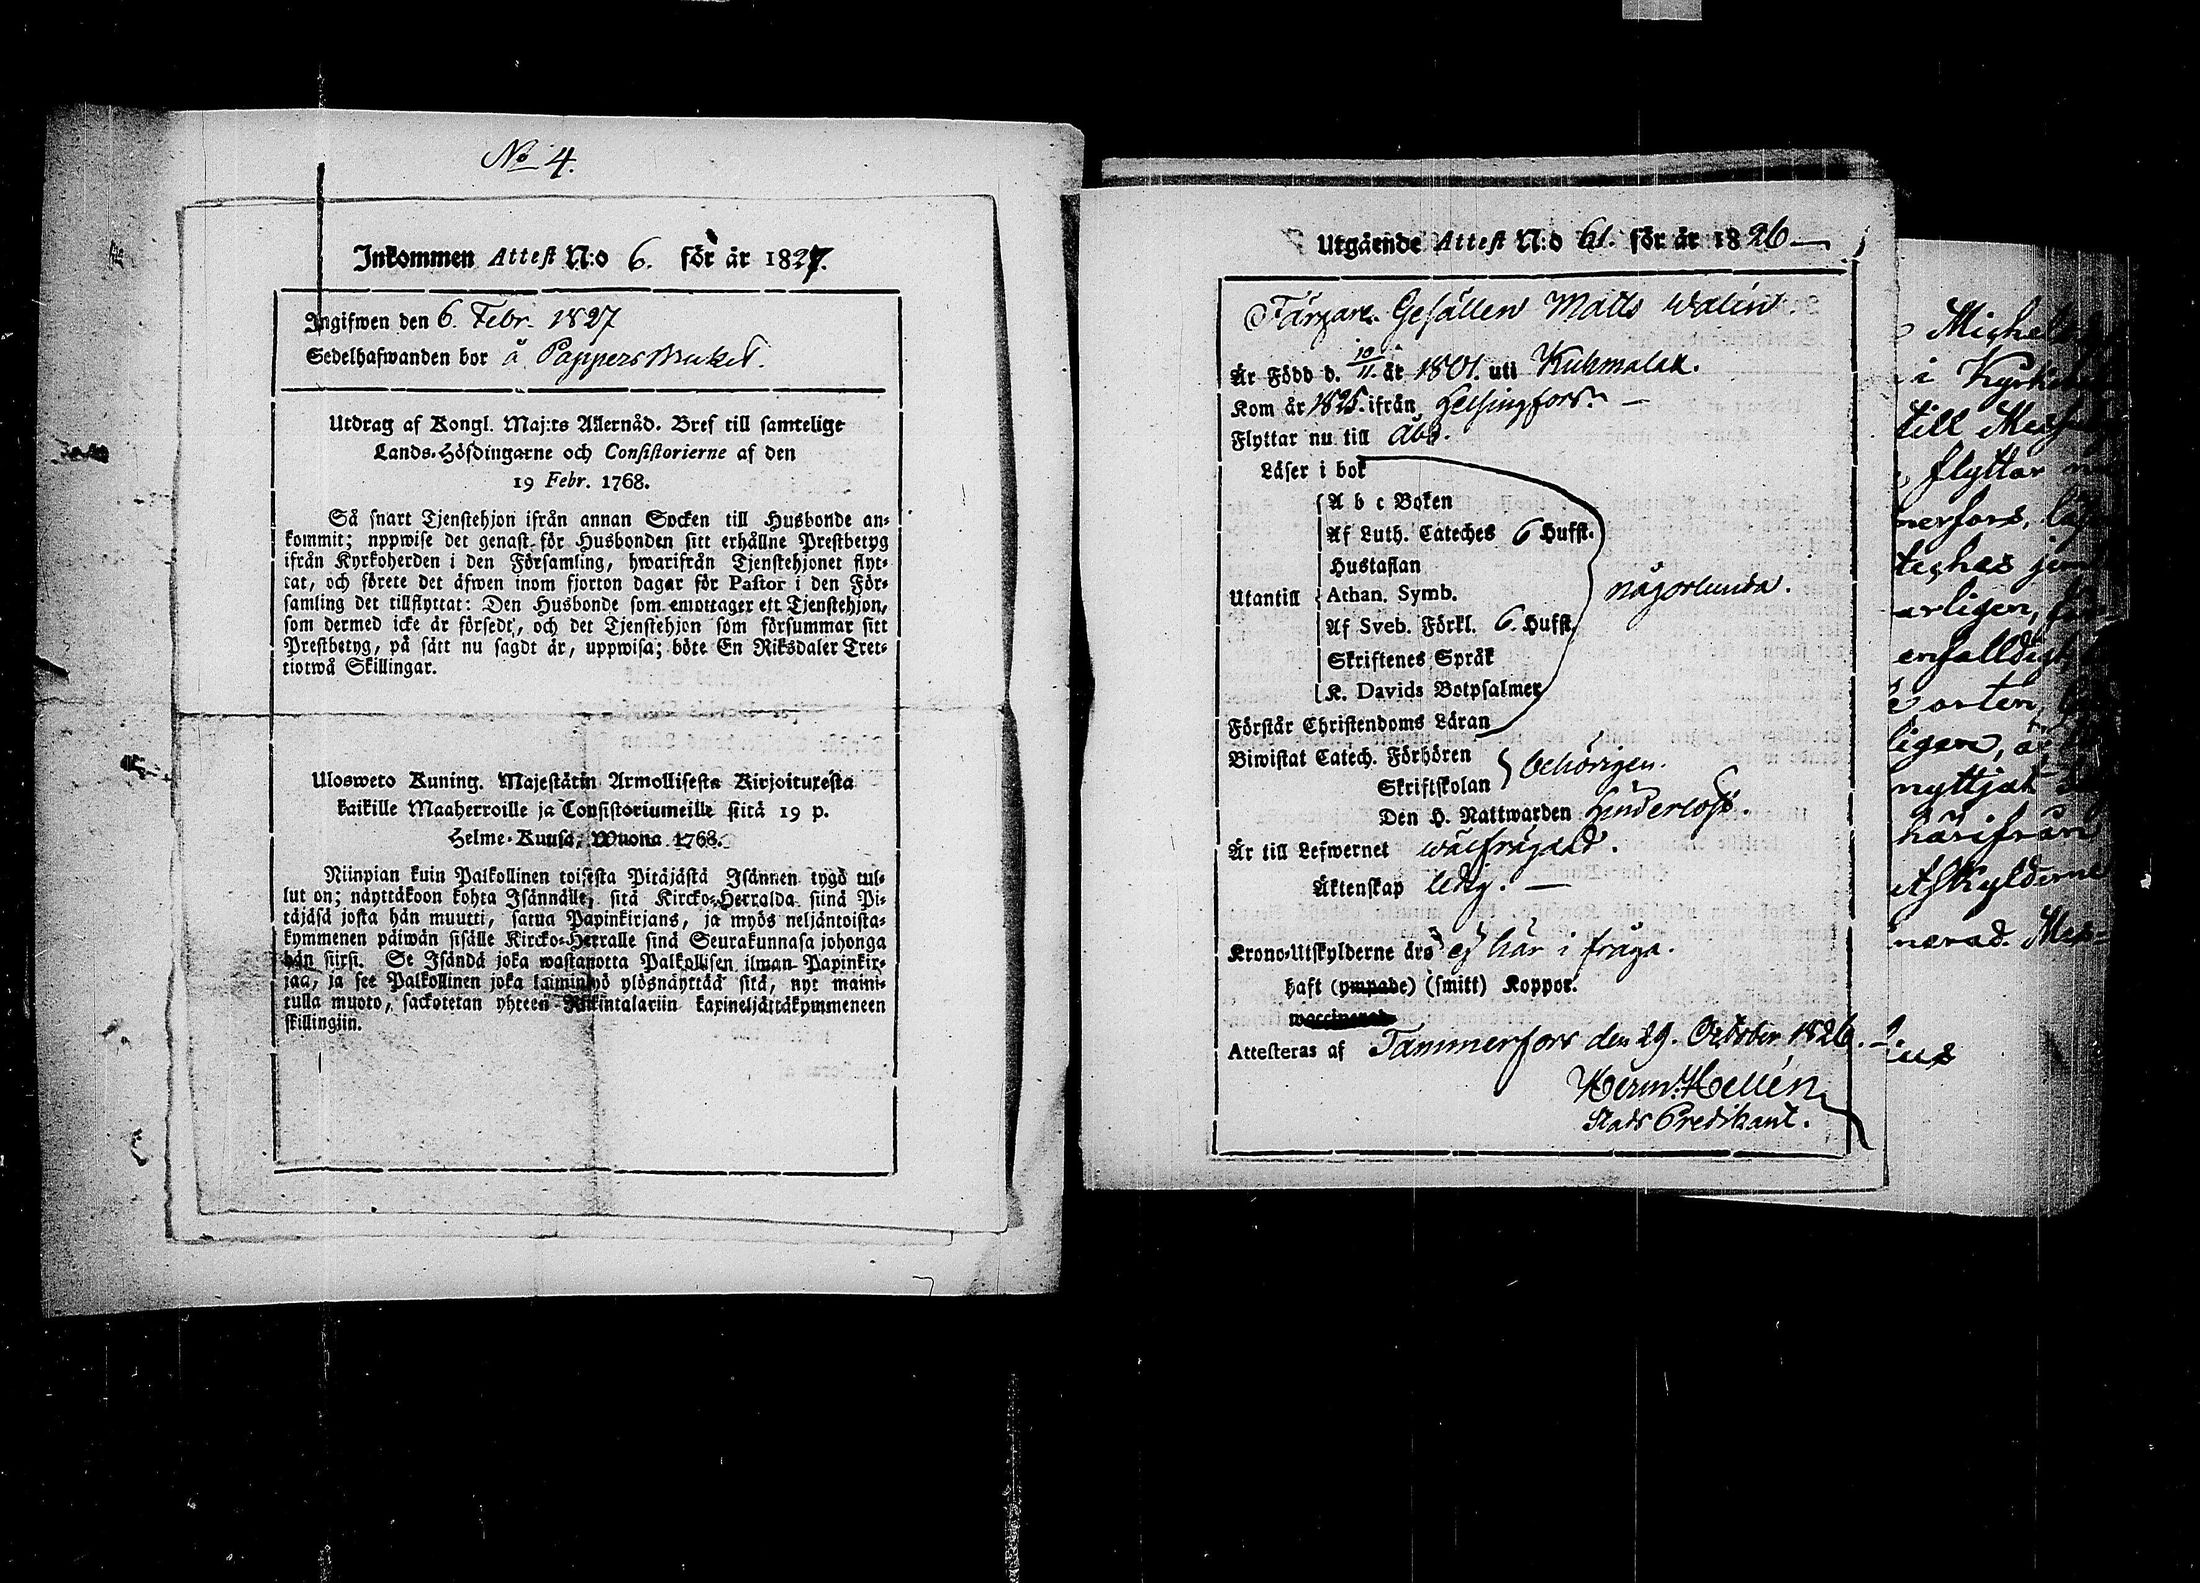 No 4.
Inkommen Attest N:o 6. för år 1827.
Ingifwen den 6. Febr. 1827
Sedelhafwanden bor å Pappersbruket.
Utdrag af Kongl. Maj:ts Allernåd. Bref till samtelige
Lands-Höfdingarne och Consistorierne af den
19 Febr. 1768.
Så snart Tjenstehjon ifrån annan Socken till Husbonde an-
kommit; uppwise det genast för Husbonden sitt erhållne Prestbetyg
ifrån Kyrkoherden i den Församling, hwarifrån Tjenstehjonet flyt-
tat, och förete det äfwen inom fjorton dagar för Pastor i den För-
samling det tillflyttat: Den Husbonde som emottager ett Tjenstehjon,
som dermed icke är försedt, och det Tjenstehjon som försummar sitt
Prestbetyg, på sätt nu sagdt är, uppwisa; böte En Riksdaler Tret-
tiotwå Skillingar.
Ulosweto Kuning. Majestätin Armollisesta Kirjoituxesta
kaikille Maaherroille ja Consistoriumeille siitä 19 p.
Helme-Kuusa, Wuonna 1768.
Niinpian kuin Palkollinen toisesta Pitäjästä Isännen tygö tul-
lut on; näyttäkoon kohta Isännälle, sitä Kircko-Herralda siinä Pi-
täjäsä josta hän muutti, saatua Papinkirjans, ja myös neljäntoista-
kymmenen päiwän sisälle Kircko-Herralle siinä Seurakunnasa johonga
hän siirsi. Se Isändä joka wastanotta Palkollisen ilman Papinkir-
jaa, ja see Palkollinen joka laiminlyö ylösnäyttää sitä, nyt maini-
tulla muoto, sackotetan yhteen Riikintalariin kaxineljättäkymmeneen
skillingiin.
Utgående Attest N:o 61. för år 1826
Färgare Gesällen Matts Walin.
Är Född d. 10/11. år 1801. uti Kuhmalax.
Kom år 1825. ifrån Helsingfors.
Flyttar nu till Åbo.
Läser i bok
A b c Boken
Af Luth. Cateches 6 Hufst.
Hustaflan
Utantill Athan. Symb. någorlunda.
Af Sveb. Förkl. 6. Hufst.
Skriftenes Språk
K. Davids Botpsalmer
Förstår Christendoms Läran
Biwistat Catech. Förhören behörigen.
Skriftskolan
Den H. Nattwarden hinderlöst.
Är till Lefwernet wälfrägdad.
Äktenskap ledig.
Krono-Utskylderne äro ej här i fråga.
Haft (ympade) (smitt) Koppor.
waccinerad
Attesteras af Tammerfors den 29. October 1826.
Herm. Hellén
Stads Predikant.
Michels
i Kyrk
till Mes
flyttar nu
nerfors, läs
teches jem
arligen, för
enfalldigt
orten,
ligen, är
nyttjat
härifrån
utskylderne
nerad. Mes-
ius